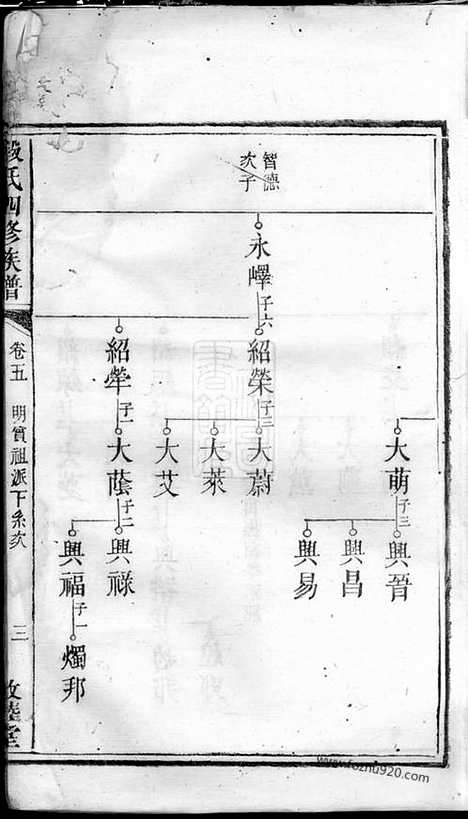 智德
次子
永嶧子六
紹榮子三
大蔚
大萊
大艾
紹犖子一
大蔭子二
興祿
興福子一
燭邦
大萌子三
興晉
興昌
興易
段氏四修族譜
卷五
明賓祖派下系次
三
敦睦堂
www.fozhu920.com